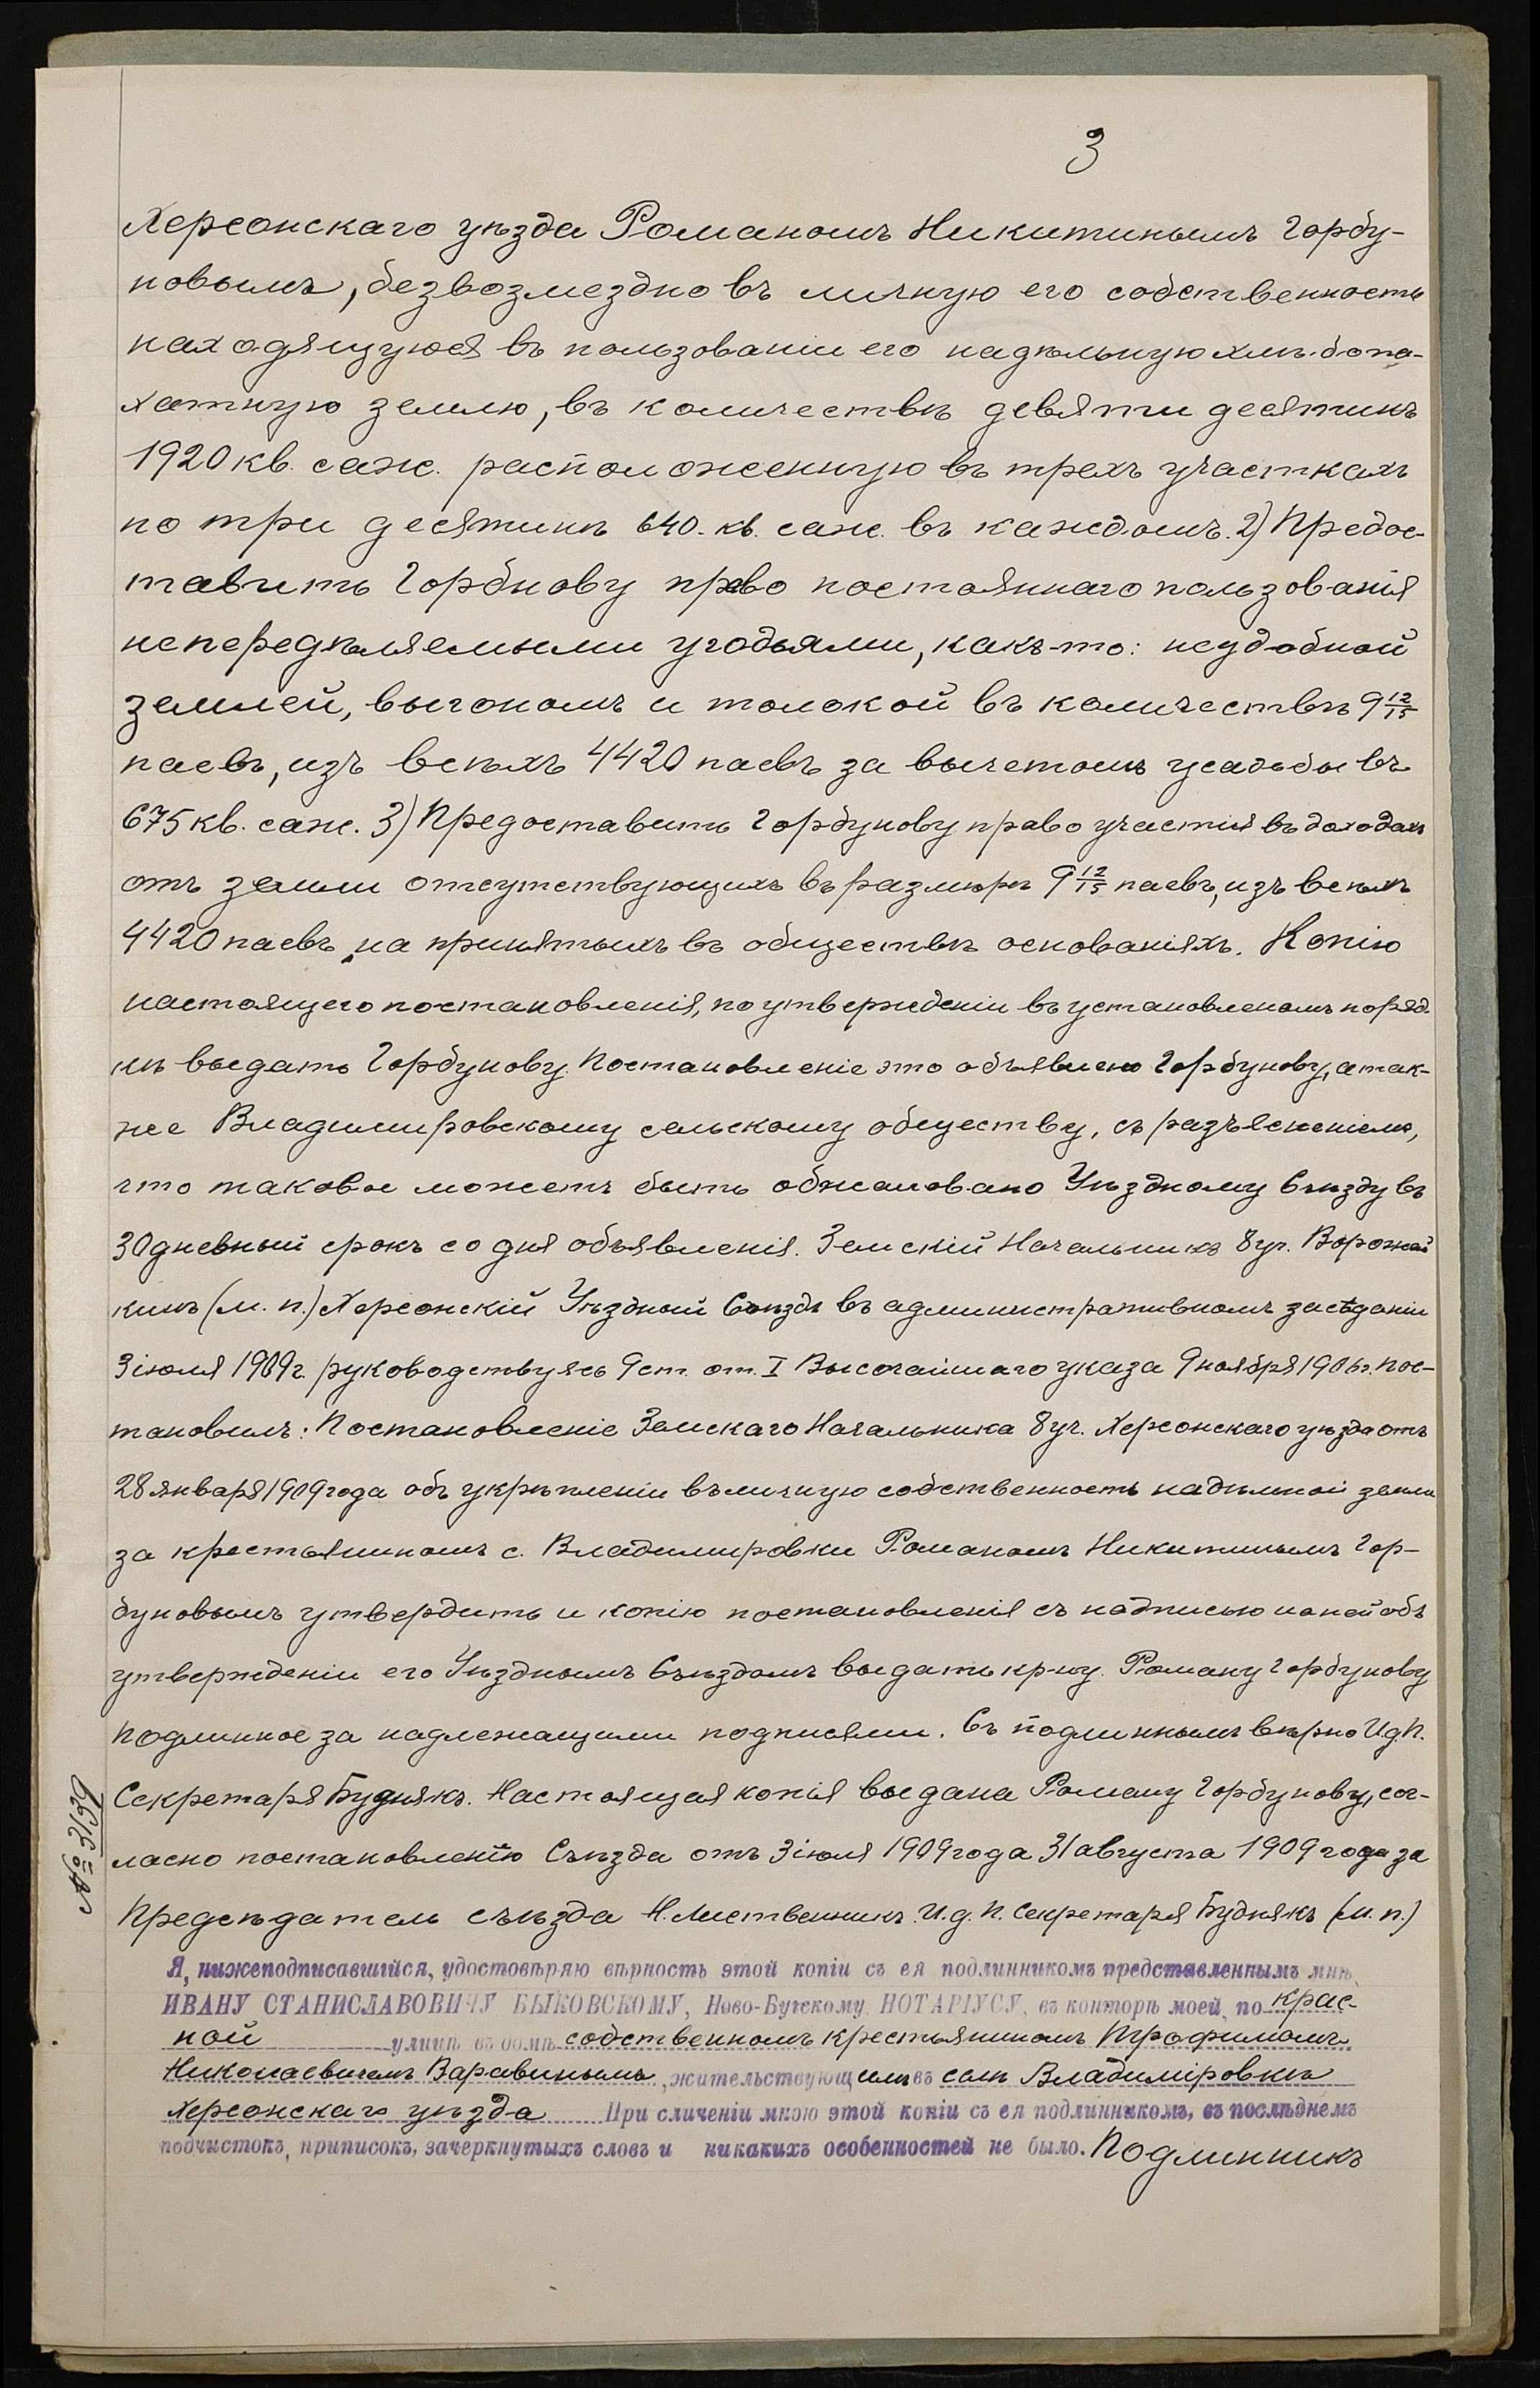 3
Херсонскаго уѣзда Романомъ Никитинымъ Горбу-
новымъ, безвозмездно въ личную его собственность
находящуюся въ пользованіи его надѣльную хлѣбопа-
хатную землю, въ количествѣ девяти десятинъ
1920 кв. саж. расположенную въ трехъ участкахъ
по три десятинѣ 640. кв. саж. въ каждомъ. 2) Предос-
тавить Горбнову право постояннаго пользованія
непередѣляемыми угодьями, какъ-то: неудобной
землей, выгономъ и толокой въ количествѣ 9 12/15
паевъ, изъ всѣхъ 4420 паевъ за вычетомъ усадьбы въ
675 кв. саж. 3) Предоставить Горбунову право участія въ доходахъ
отъ земли отсутствующихъ въ размѣрѣ 9 12/15 паевъ, изъ всѣхъ
4420 паевъ, на принятыхъ въ обществѣ основаніяхъ. Копію
настоящего постановленія, по утвержденіи въ установленомъ поряд-
кѣ выдать Горбунову. Постановленіе это объявлено Горбунову, а так-
же Владимировскому сельскому обществу, съ разъясненіемъ,
что таковое можетъ быть обжаловано Уѣздному Съѣзду въ
30 дневный срокъ со дня объявленія. Земскій Начальникъ 8 уч. Ворожей
кинъ (м. п.) Херсонскій Уѣздный Съѣздъ въ административномъ засѣданіи
3 іюля 1909 г. руководствуясь 9 ст. от. I Высочайшаго указа 9 ноября 1906 г. пос-
тановилъ: Постановленіе Земскаго Начальника 8 уч. Херсонскаго уѣзда отъ
28 января 1909 года объ укрѣпленіи въ личную собственность надѣлной земли
за крестьяниномъ с. Владимировки Романомъ Никитинымъ Гор-
буновымъ утвердить и копію постановленія съ надписью на ней объ
утвержденіи его Уѣзднымъ Съѣздомъ выдать кр-ну. Роману Горбунову
Подлинное за надлежащими подписями. Съ подлиннымъ вѣрно И.д.П.
Секретаря Буднякъ. Настоящая копія выдана Роману Горбунову, сог-
ласно постановленію Съѣзда отъ 3 іюля 1909 года 31 августа 1909 года за
Предсѣдатель съѣзда Н. Листвениикъ. И. д. П. Секретаря Буднякъ (м. п.)
№ 3139
Я, нижеподписавшійся, удостовѣряю вѣрность этой копіи съ ея подлинникомъ представленнымъ мнѣ,
ИВАНУ СТАНИСЛАВОВИЧУ БЫКОВСКОМУ, Ново-Бугскому НОТАРІУСУ, въ конторѣ моей, по Крас-
ной улицѣ въ домѣ собственномъ крестьяниномъ Трофимомъ
Николаевичемъ Варавинымъ, жительствующимъ въ селѣ Владиміровкѣ
Херсонскаго уѣзда При сличеніи мною этой копіи съ ея подлинникомъ, въ послѣднемъ
подчистокъ, приписокъ, зачеркнутыхъ словъ и никакихъ особенностей не было. Подлинникъ